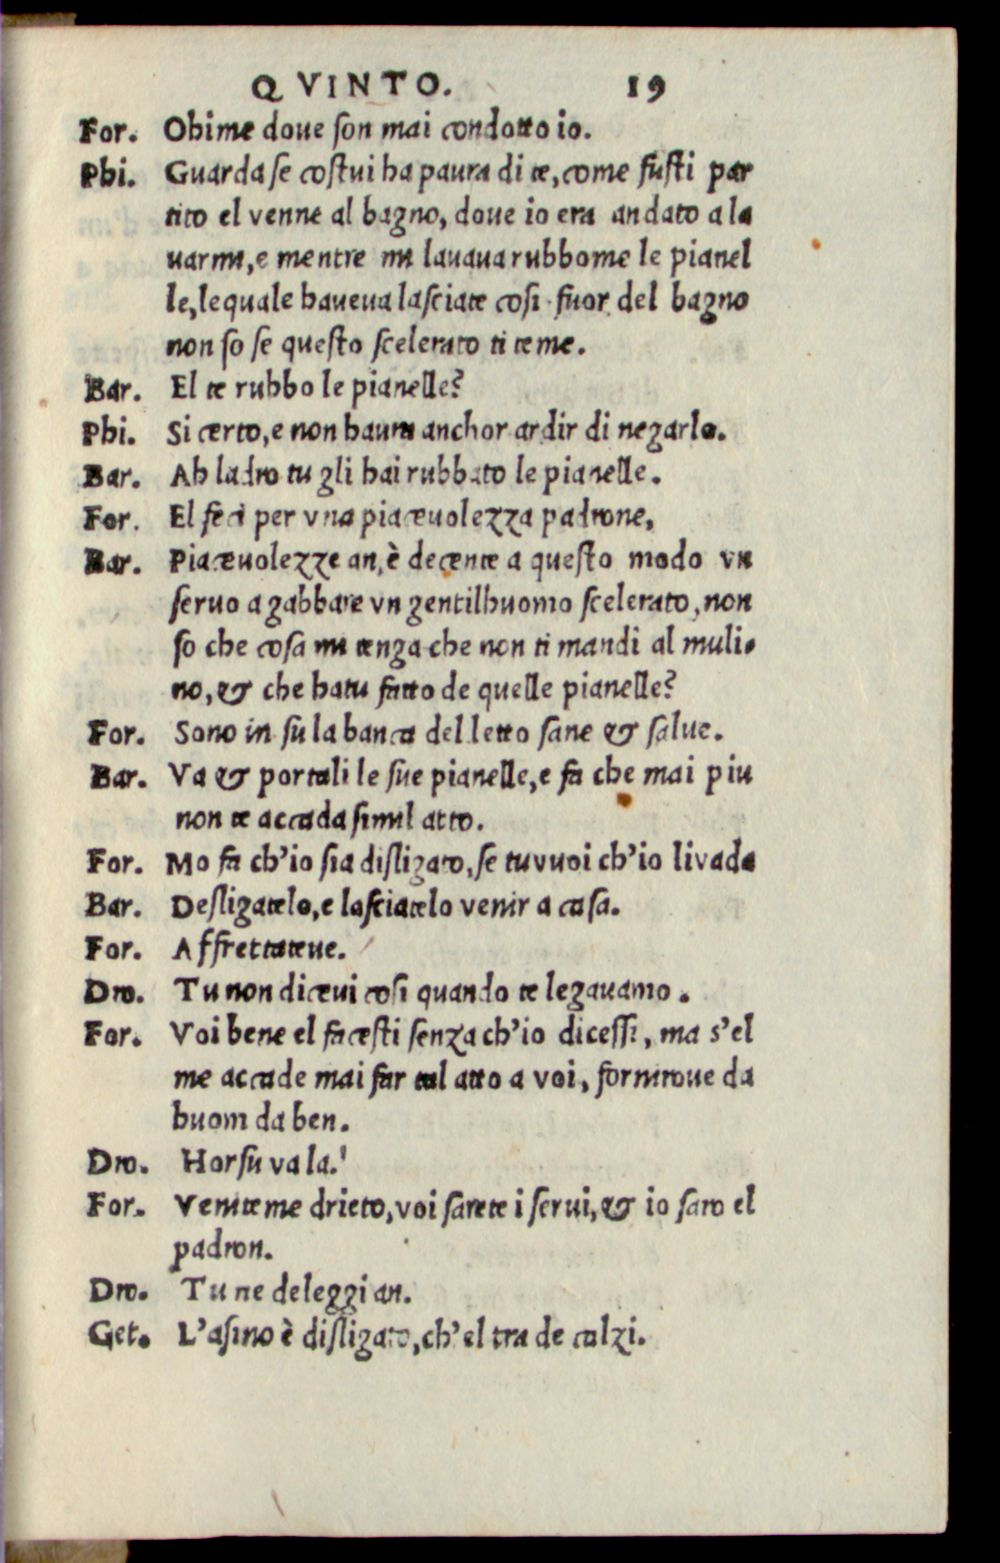 QVINTO. 19
For. Ohime doue ſon mai condotto io.
Phi. Guarda ſe coſtui ha paura di te, come fuſti par
tito el venne al bagno, doue io era andato a la
uarmi, e mentre mi lauaua rubbome le pianel
le, lequale haueua laſciate coſi fuor del bagno
non ſo ſe queſto ſcelerato ti teme.
Bar. El te rubbo le pianelle?
Phi. Si certo, e non haura anchor ardir di negarlo.
Bar. Ah ladro tu gli hai rubbato le pianelle.
For. El feci per vna piaceuolezza padrone,
Bar. Piaceuolezze an, è decente a queſto modo vn
ſeruo a gabbare vn gentilhuomo ſcelerato, non
ſo che coſa mi tenga che non ti mandi al muli-
no, & che hatu fatto de quelle pianelle?
For. Sono in ſu la banca del letto ſane & ſalue.
Bar. Va & portali le ſue pianelle, e fa che mai piu
non te accada ſimil atto.
For. Mo fa ch'io ſia diſligato, ſe tu vuoi ch'io li vada
Bar. Deſligatelo, e laſciatelo venir a caſa.
For. Affrettateue.
Dro. Tu non diceui coſi quando te legauamo.
For. Voi bene el faceſti ſenza ch'io diceſſi, ma s'el
me accade mai far tal atto a voi, forniroue da
huom da ben.
Dro. Horſu va la.
For. Veniteme drieto, voi ſarete i ſerui, & io ſaro el
padron.
Dro. Tu ne deleggi an.
Get. L'aſino è diſligato, ch'el tra de calzi.